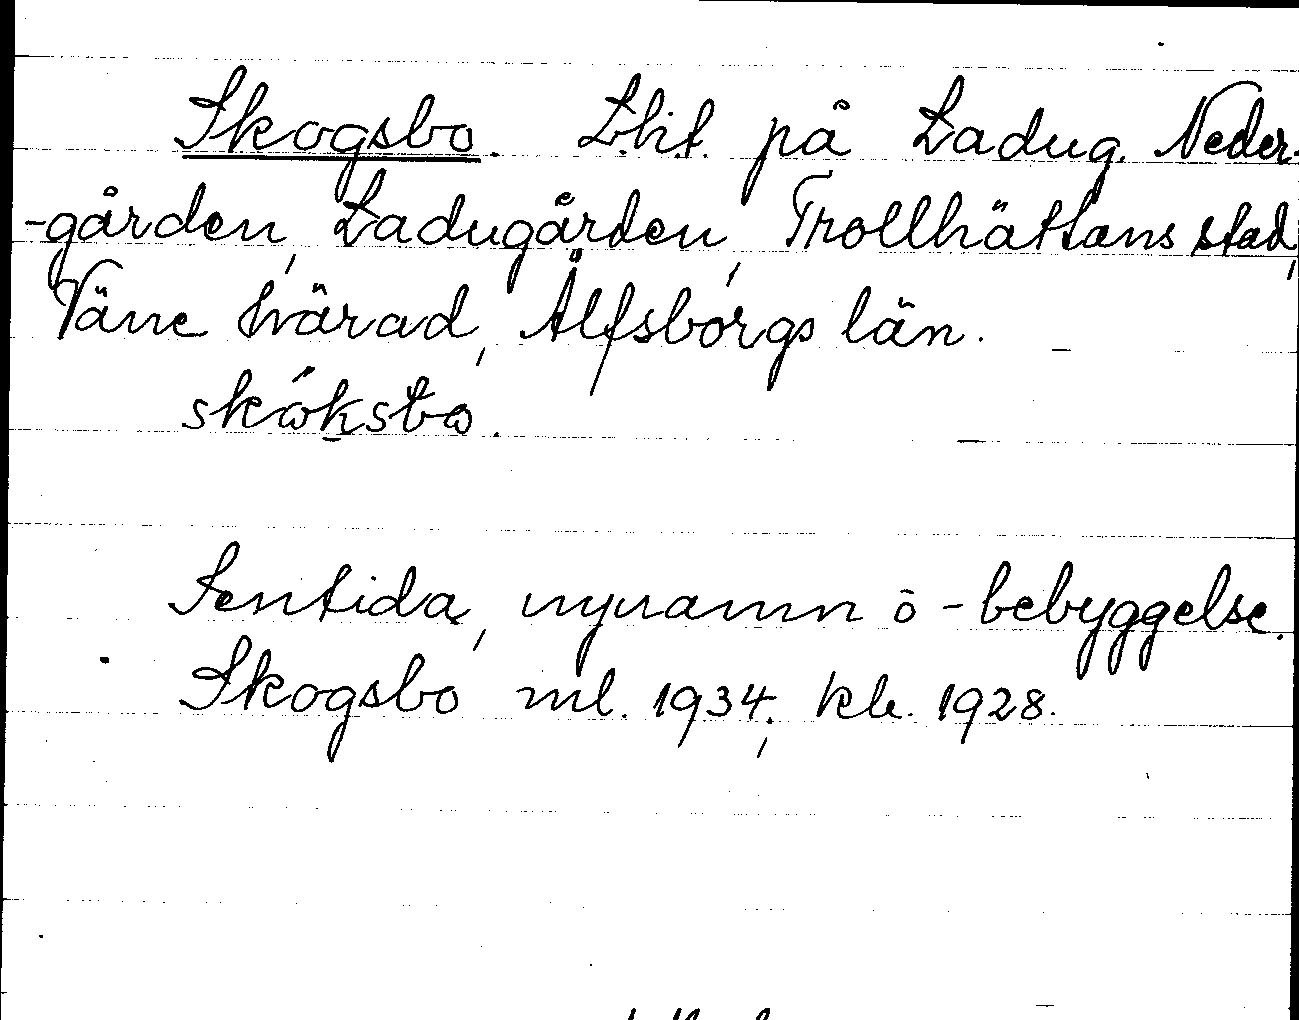 Skogsbo. Lht. på Ladug. Neder-
-gården, Ladugården, Trollhättans stad,
Väne härad, Älfsborgs län.
Sentida, nynamn ö -bebyggelse.
Skogsbo ml. 1934; kb. 1928.